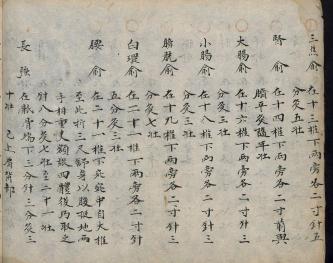 三焦俞　在十三椎下兩旁各二寸針五
分灸五壯
腎俞　在十四椎下兩旁各二寸前與
臍平灸隨年壯
大腸俞　在十六椎下兩旁各二寸針
三分灸三壯
小腸俞　在十八椎下兩旁各二寸針
三分灸三壯
膀胱俞　在十九椎下兩旁各二寸針
五分灸三壯
白環俞　在二十一椎下兩旁各二寸針
五分灸三壯
腰俞　在二十一椎下宛宛中自大椎
至此折三尺舒身以腹挺地兩
手相重支額縱四體後乃取之
針八分灸七壯至二十一壯
長強　在骶骨端下三分針三分灸三
十壯　已上肩背部